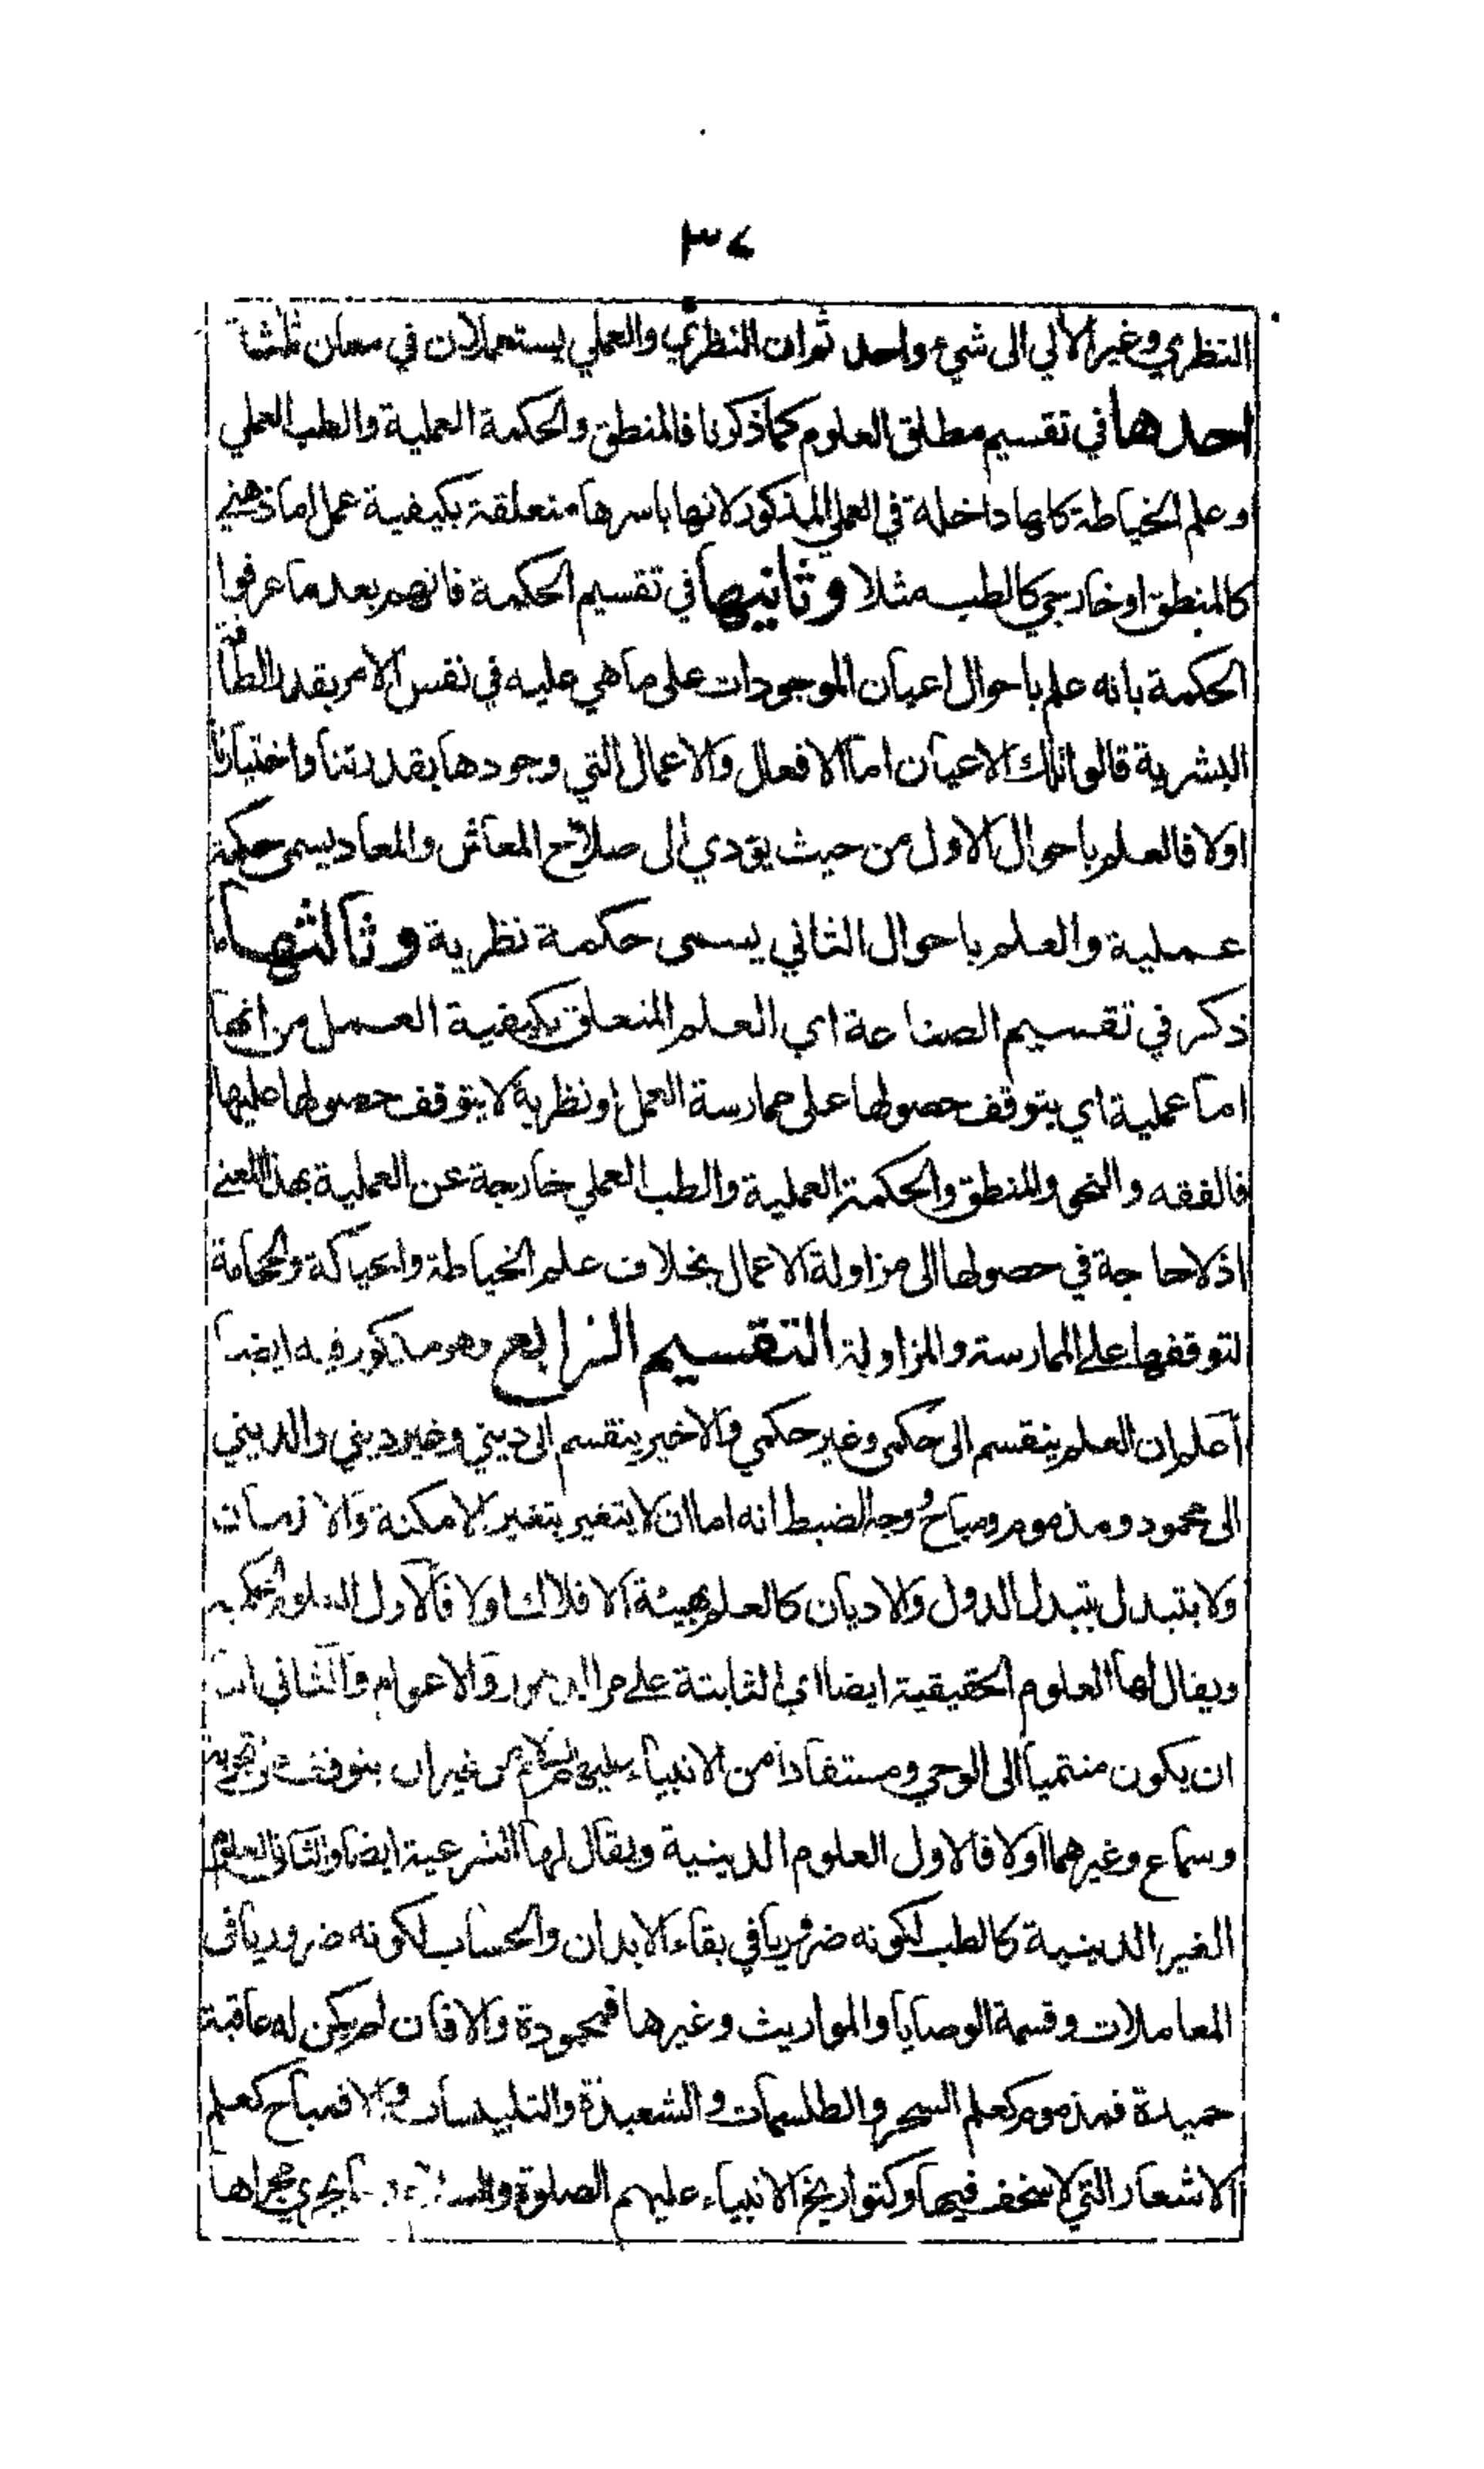 ٣٤
النظري وغير الآلي الى شيء واحد ثم ان النظري والعملي يستعملان في معان ثلثة
احدها في تقسيم مطلق العلوم كما ذكرنا فالمنطق والحكمة العملية والطب العملي
وعلم الخياطة كلها داخلة في العملي المذكور لانها باسرها متعلقة بكيفية عمل اما ذهني
كالمنطق او خارجي كالطب مثلا وثانيها في تقسيم الحكمة فانهم بعد ما عرفوا
الحكمة بانه علم باحوال اعيان الموجودات على ما هي عليه في نفس الامر بقدر الطاقة
البشرية قالوا تلك الاعيان اما الافعال والاعمال التي وجودها بقدرتنا واختيارنا
اولا فالعلم باحوال الاول من حيث يؤدي الى صلاح المعاش والمعاد يسمى حكمة
عملية والعلم باحوال الثاني يسمى حكمة نظرية وثالثها ما
ذكر في تقسيم الصناعة اي العلم المتعلق بكيفية العمل من انها
اما عملية اي يتوقف حصولها على ممارسة العمل او نظرية لا يتوقف حصولها عليها
فالفقه والنحو والمنطق والحكمة العملية والطب العملي خارجة عن العملية بهذا المعنى
اذ لا حاجة في حصولها الى مزاولة الاعمال بخلاف علم الخياطة والحياكة والحجامة
لتوقفها على الممارسة والمزاولة التقسيم الرابع وهو مذكور فيه ايضا
اعلم ان العلم ينقسم الى حكمي وغير حكمي والاخير ينقسم الى ديني وغير ديني والديني
الى محمود ومذموم ومباح ووجه الضبط انه اما ان لا يتغير بتغير الامكنة والازمان
ولا يتبدل بتبدل الدول والاديان كالعلم بهيئة الافلاك اولا فالاول العلوم الحكمية
ويقال لها العلوم الحقيقية ايضا اي الثابتة على مر الدهور والاعوام والثاني اما
ان يكون منتميا الى الوحي ومستفادا من الانبياء عليهم السلام من غير ان يتوقف على تجربة
وسماع وغيرهما اولا فالاول العلوم الدينية ويقال لها الشرعية ايضا والثاني العلوم
الغير الدينية كالطب لكونه ضروريا في بقاء الابدان والحساب لكونه ضروريا في
المعاملات وقسمة الوصايا والمواريث وغيرها فمحمودة والا فان لم يكن له عاقبة
حميدة فمذموم كعلم السحر والطلسمات والشعبذة والتلبيسات والا فمباح كعلم
الاشعار التي لا سخف فيها وكتواريخ الانبياء عليهم الصلوة و يجري مجراها